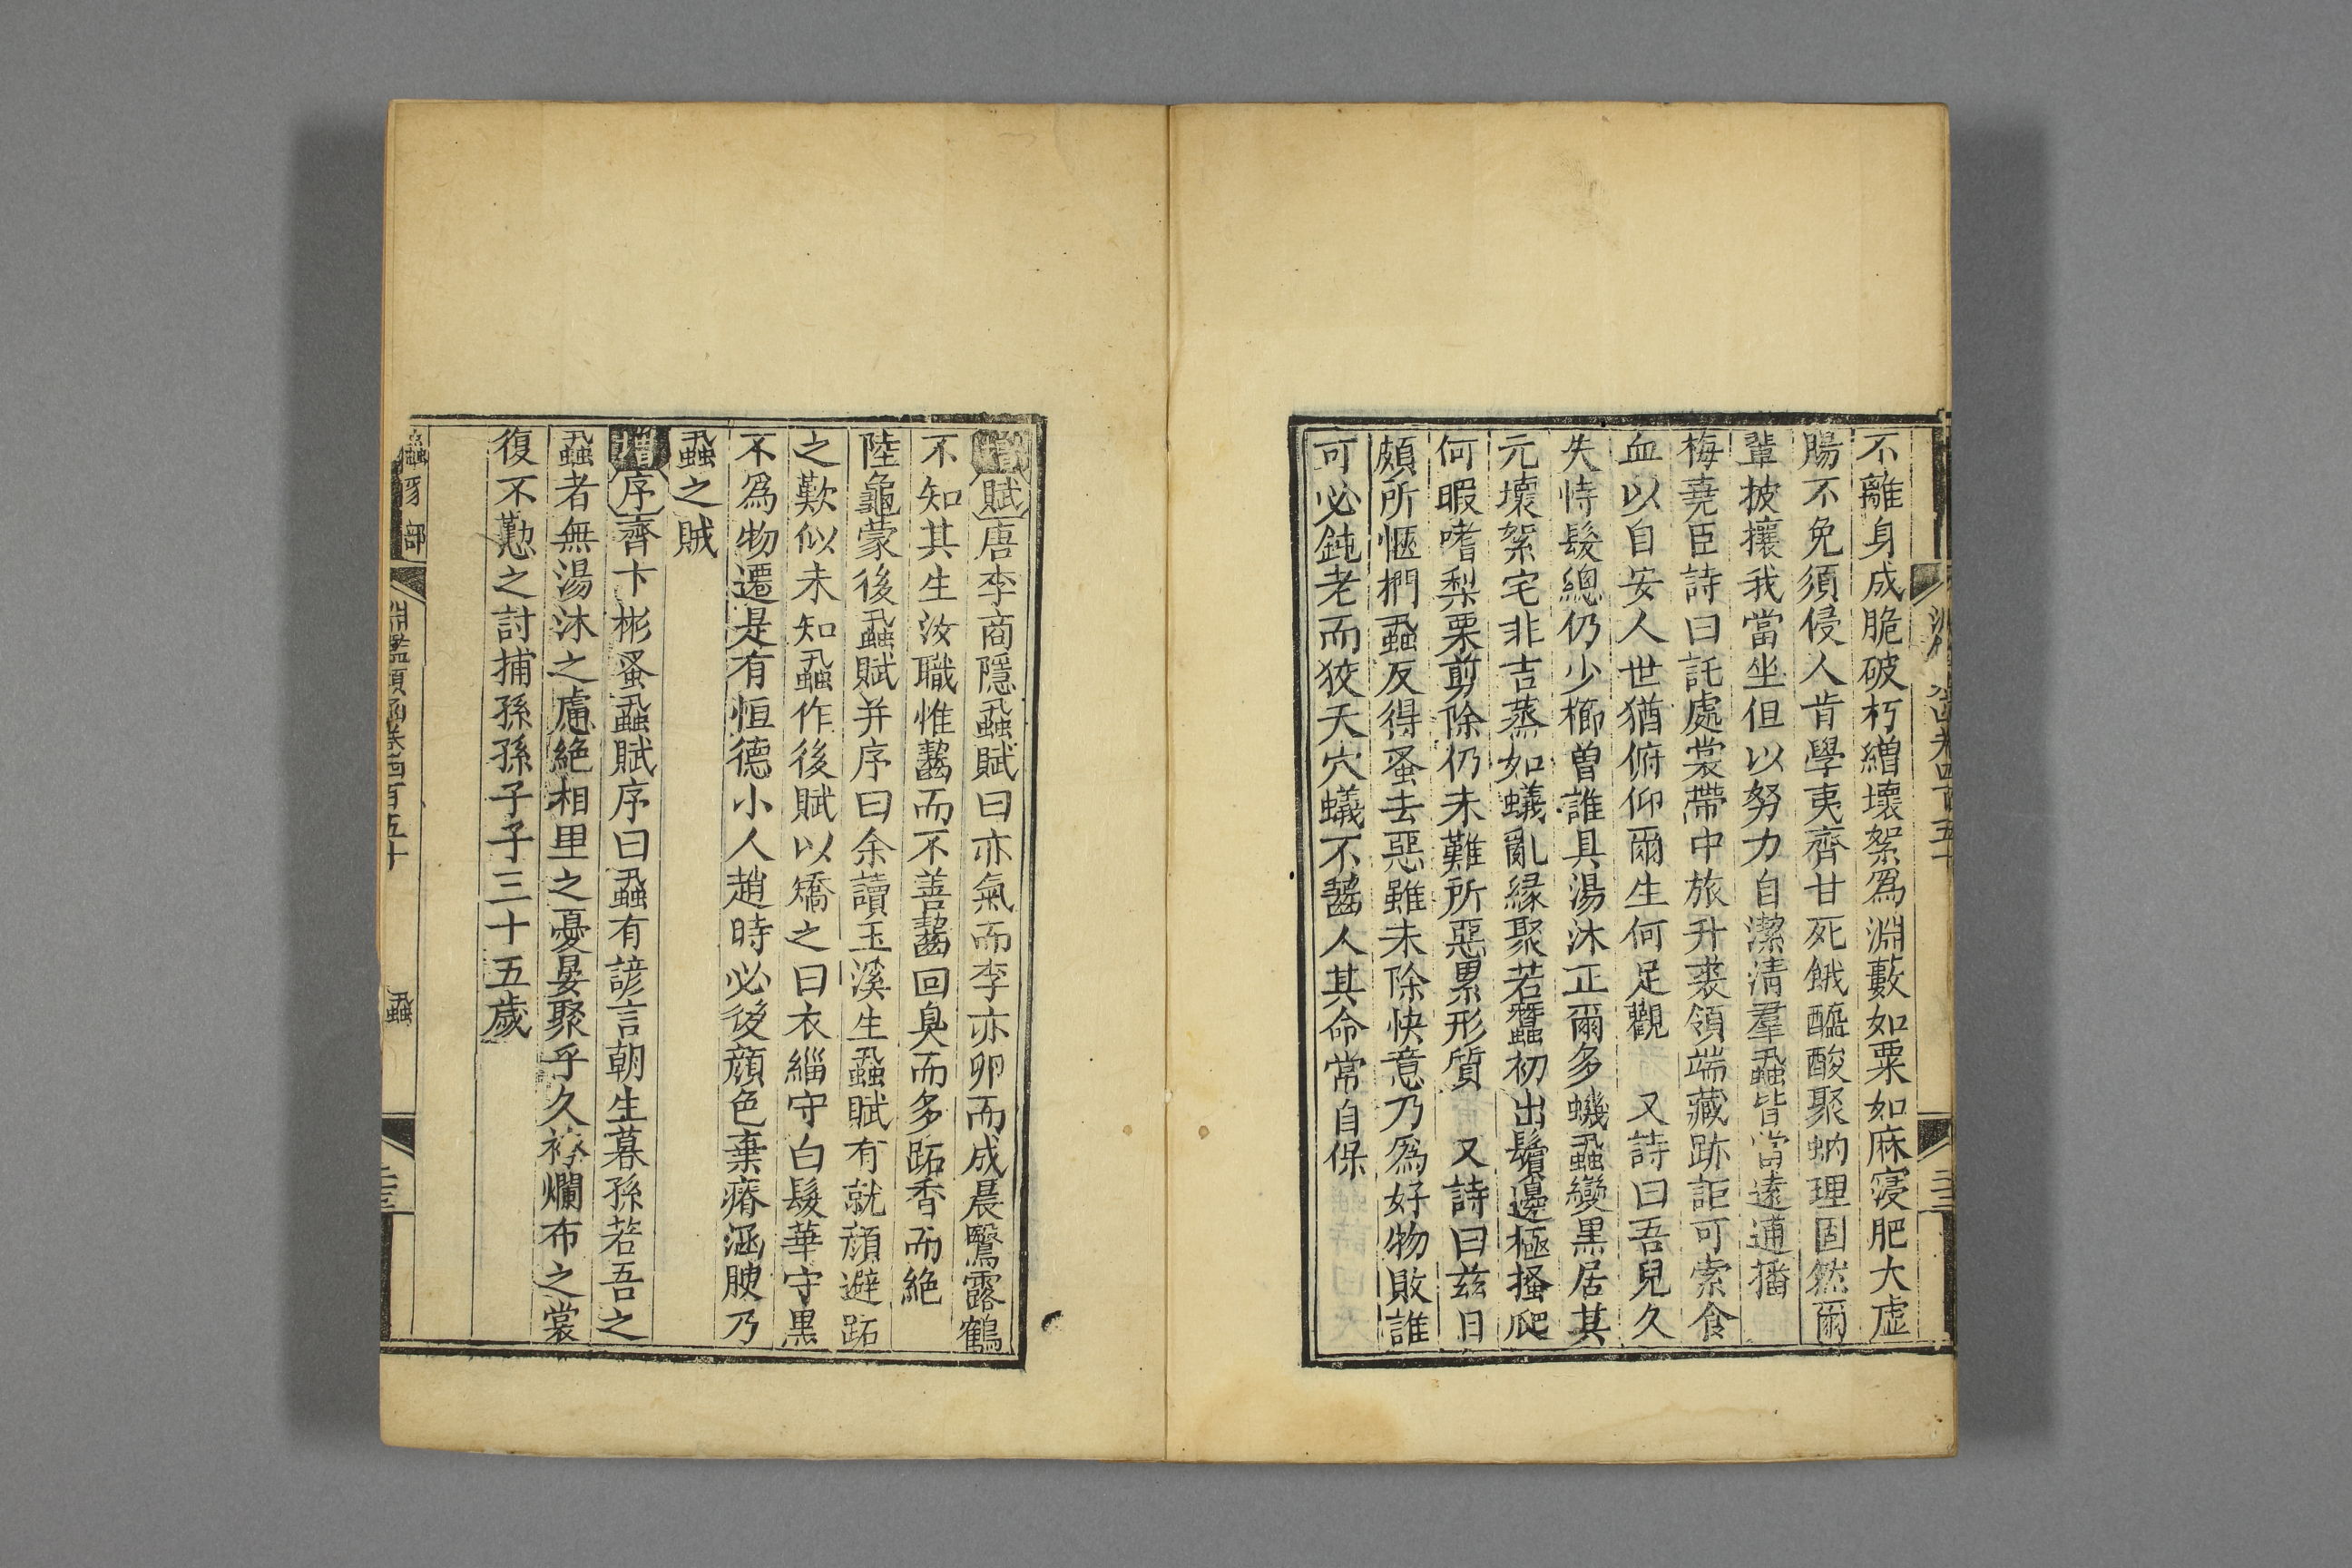 不離身成脆破朽繒壞絮爲淵藪如粟如麻寖肥大虛
腸不免須侵人肯學夷齊甘死餓醯酸聚蚋理固然爾
輩披攘我當坐但以努力自潔清羣蝨皆當遠逋播
梅堯臣詩曰託處裳帶中旅升裘領端藏跡詎可索食
血以自安人世猶俯仰爾生何足觀 又詩曰吾兒久
失恃髮總仍少櫛曾誰具湯沐正爾多蟣蝨變黑居其
元壞絮宅非吉蒸如蟻亂緣聚若蠶初出鬚邊極搔爬
何暇嗜梨栗剪除仍未難所惡累形質 又詩曰茲日
頗所愜捫蝨反得蚤去惡雖未除快意乃爲好物敗誰
可必鈍老而狡夭穴蟻不齧人其命常自保
增賦唐李商隱蝨賦曰亦氣而孕亦卵而成晨鷖露鶴
不知其生汝職惟齧而不善齧回臭而多跖香而絶
陸龜蒙後蝨賦并序曰余讀玉溪生蝨賦有就顏避跖
之歎似未知蝨作後賦以矯之曰衣緇守白髮華守黑
不爲物遷是有恒德小人趨時必後顏色棄瘠涵腴乃
蝨之賊
增序齊卞彬蚤蝨賦序曰蝨有諺言朝生暮孫若吾之
蝨者無湯沐之慮絶相里之憂晏聚乎久袴爛布之裳
復不懃之討捕孫孫子子三十五歲
蟲豸部
淵鑑類函卷四百五十
蝨